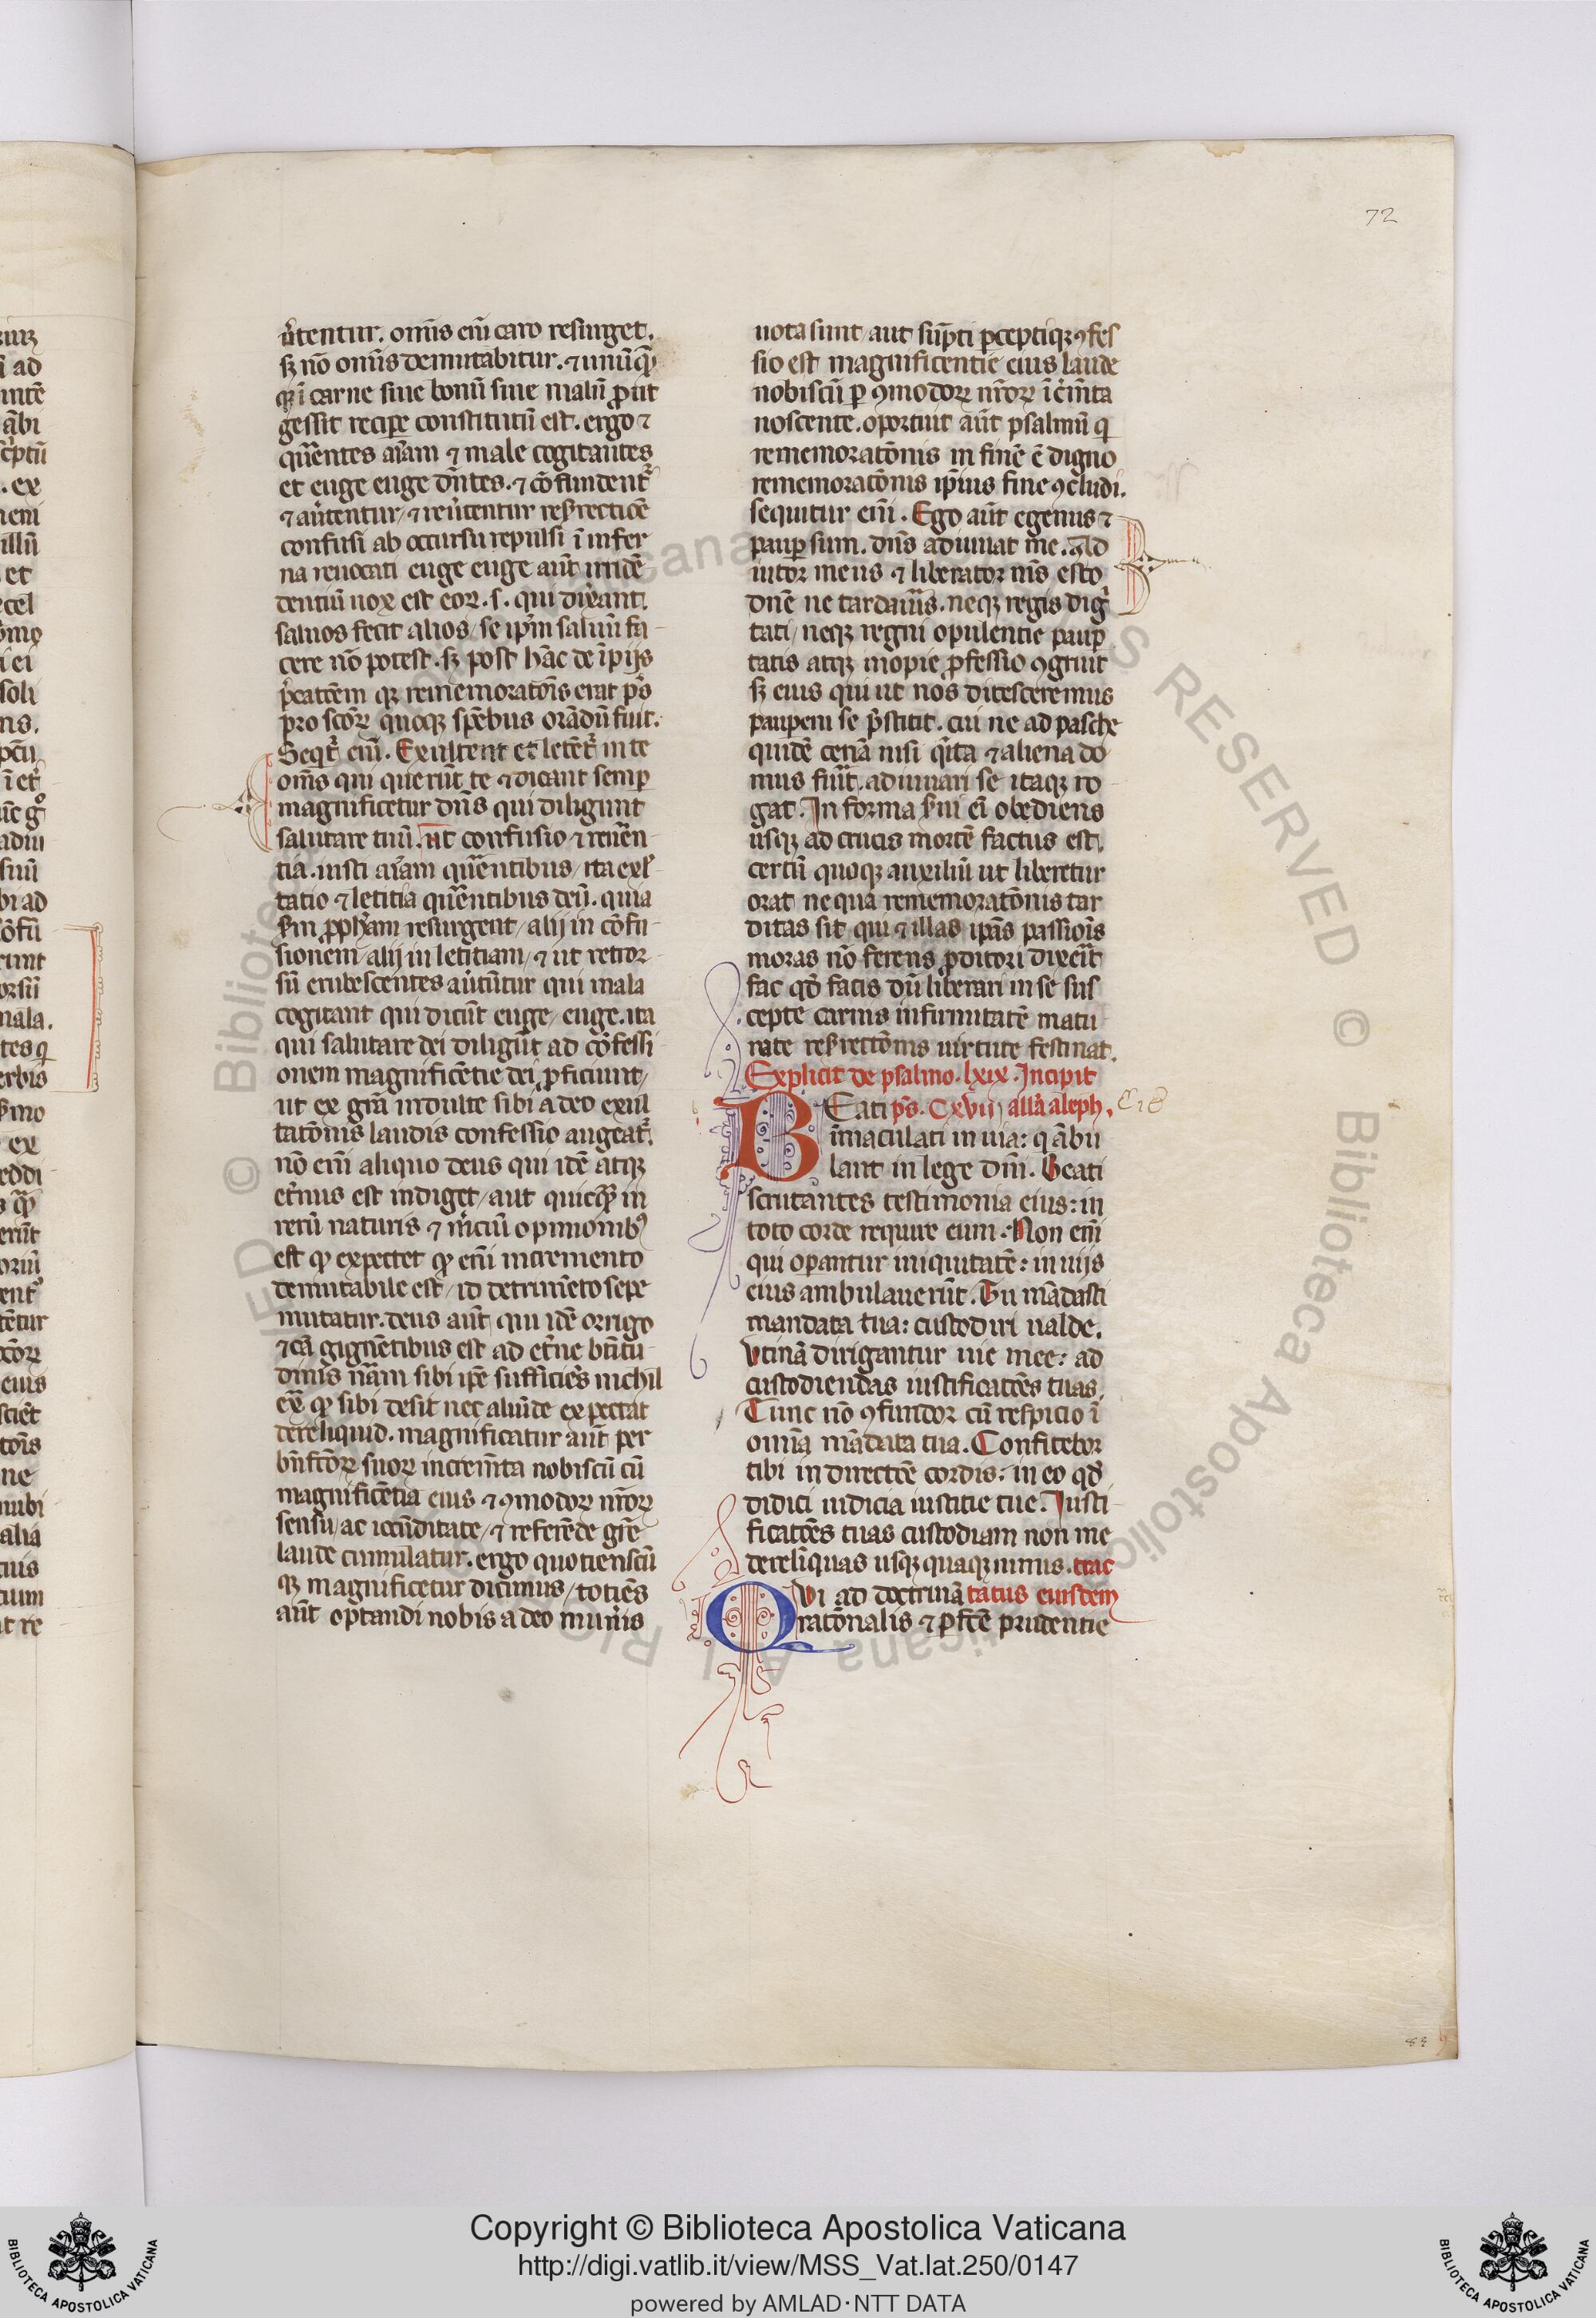 72
ũtentur. om̃s em̃ caro resurget.
sꝫ nõ om̃s demutabitur. ⁊ unũq̃
qꝫ ĩ carne siue bonũ siue malũ ꝓut
gessit recipe constitutũ est. ergo ⁊
querentes aĩam ⁊ male cogitantes
et euge euge dñtes. ⁊ cõfundentᷣ
⁊ auertentur / ⁊ reuertentur resurrectiõe
confusi ab occursu repulsi ĩ infer
na reuocati euge euge aũt irridẽ
dentiũ uox est eoꝝ .s. qui dixerant.
saluos fecit alios / se ip̃m saluũ fa-
cere nõ potest. sꝫ post hãc de ĩpijs
p̃catiõem qꝫ rememoratõis erat p̃o
pro sctõꝝ quoqꝫ sp̃ebus orãdũ fuit.
Seqtᷣ em̃. Exultent et letẽtᷣ in te
om̃s qui querũt te ⁊ dicant semꝑ
magnificetur dñs qui diligunt
salutare tuũ. ut confusio ⁊ reuerẽn-
tia. iusti aĩam querentibus / ita exl̾-
tatio ⁊ letitia querentibus deũ. quia
s̃m ꝓph̃am resurgent / alij in cõfu-
sionem / alij in letitiam / ⁊ ut retror-
sũ erubescentes auertũtur qui mala
cogitant qui dicũt euge / euge. ita
qui salutare dei diligũt ad cõfessi-
onem magnificẽtie dei ꝓficiunt /
ut ex gr̃a indulte sibi a deo exul
tatõnis laudis confessio augeatᷣ.
nõ em̃ aliquo deus qui idẽ atqꝫ
et̃nus est indiget / aut quicq̃ in
rerũ naturis ⁊ iniciũ opinionibꝰ
est qꝫ expectet qꝫ em̃ incremento
demutabile est / id detrimẽto sepe
mutatur. deus aũt qui idẽ origo
⁊ cã gignẽtibus est ad et̃ne btĩtu-
dinis nãm sibi ip̃e sufficiẽs nichil
eẽ qꝫ sibi desit nec aliũde expectat
dereliquid. magnificatur aũt per
bñfctõꝝ suoꝝ increm̃ta nobiscũ cũ
magnificẽtia eius ⁊ ꝯmodoꝝ nr̃oꝝ
sensu / ac iocũditate / ⁊ referẽde gr̃e
laude cumulatur. ergo quotienscũ
qꝫ magnificetur dicimus / totiẽs
aũt optandi nobis a deo mun̾is
uota sunt / aut sũpti ꝑceptiqꝫ ꝯfes
sio est magnificentie eius laude
nobiscũ ꝑ ꝯmodoꝝ nr̃oꝝ ĩcrem̃ta
noscente. oportuit aũt psalmũ q
rememoratõnis in finẽ ẽ digno
rememoratõnis ip̃ius fine ꝯcludi.
sequitur em̃. Ego aũt egenus ⁊
pauꝑ sum. dñs adiuuat me. Ad
iutor meus ⁊ liberator m̃s esto
dñe ne tardaueris. neqꝫ regis digñ
tati / neqꝫ regni opulentie pauꝑ
tatis atqꝫ inopie ꝓfessio ꝯgruit
sꝫ eius qui ut nos ditesceremus
pauperu se p̃stitit. cui ne ad pasche
quidẽ cenã nisi q̃sita ⁊ aliena do
mus fuit. adiuuari se itaqꝫ ro-
gat. In forma s̾ui ei obediens
usqꝫ ad crucis mortẽ factus est.
certũ quoqꝫ auxiliũ ut liberetur
orat ne qua rememoratõnis tar
ditas sit qui ⁊ illas ip̃as passiõis
moras nõ ferens ꝓditori dixerit
fac qd̾ facis dũ liberari in se sus
cepte carnis infirmitatẽ matu-
rate resurrectõnis uirtute festinat.
Explicit de psalmo. lxix. Incipit
Beati p̃s. Cxviij allã aleph. C18
ĩmaculati in uia: q ãbu
lant in lege dñi. Beati
scrutantes testimonia eius: in
toto corde require eum. Non em̃
qui operantur iniquitatẽ: in uijs
eius ambulauerũt. Tu mãdasti
mandata tua: custodiri ualde.
Vtinã dirigantur uie mee: ad
custodiendas iustificatiões tuas.
Tunc nõ ꝯfundor cũ respicio ĩ
omĩa mãdata tua. Confitebor
tibi in directiõe cordis: in eo qd̾
didici iudicia iustitie tue. Iusti-
ficatiões tuas custodiam non me
derelinquas usqꝫquaqꝫ nimis. trac
Qui ad doctrinã tatus eiusdem
ratõnalis ⁊ ꝑfctẽ prudentie
83
Copyright © Biblioteca Apostolica Vaticana
http://digi.vatlib.it/view/MSS_Vat.lat.250/0147
powered by AMLAD·NTT DATA